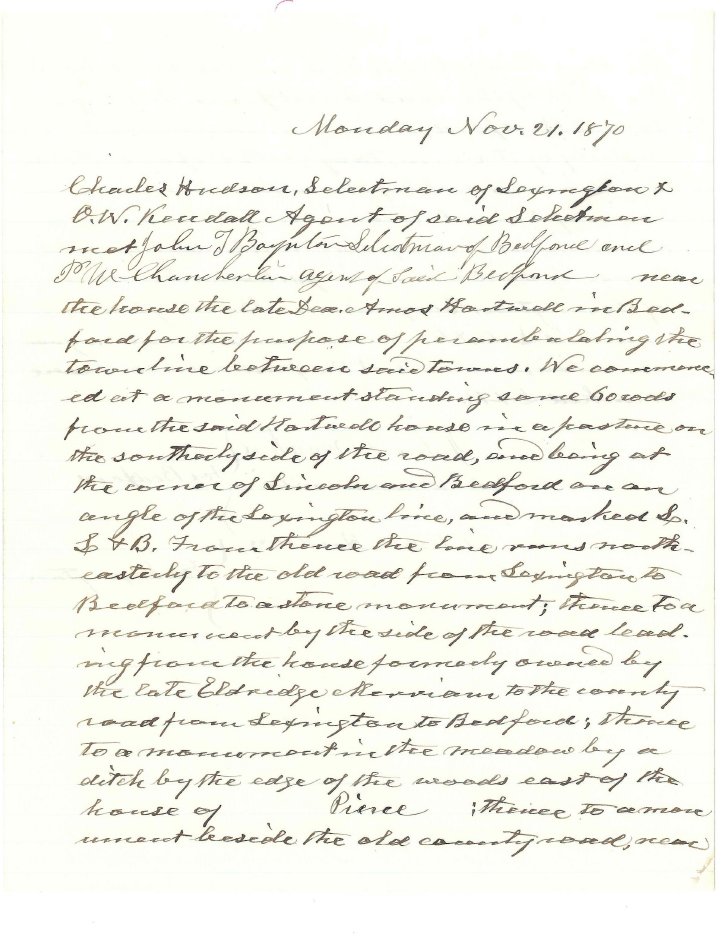 Monday Nov. 21. 1870
Charles Hudson, Selectman of Lexington &
O. W. Kendall Agent of said Selectmen
met John T Boynton Selectman of Bedford and
Chamberlin agent of said Bedford near
the house the late Dea. Amos Hartwell in Bed-
ford for the purpose of perambulating the
town line between said towns. We commenc-
ed at a monument standing some 60 rods
from the said Hartwell house in a pasture on
the southerly side of the road, and being at
the corner of Lincoln and Bedford on an
angle of the Lexington line, and marked L.
L & B. From thence the line runs north-
easterly to the old road from Lexington to
Bedford to a stone monument; thence to a
monument by the side of the road lead-
ing from the house formerly owned by
the late Eldridge Merriam to the county
road from Lexington to Bedford; thence
to a monument in the meadow by a
ditch by the edge of the woods east of the
house of Pierce ; thence to a mon
ument beside the old county road, near